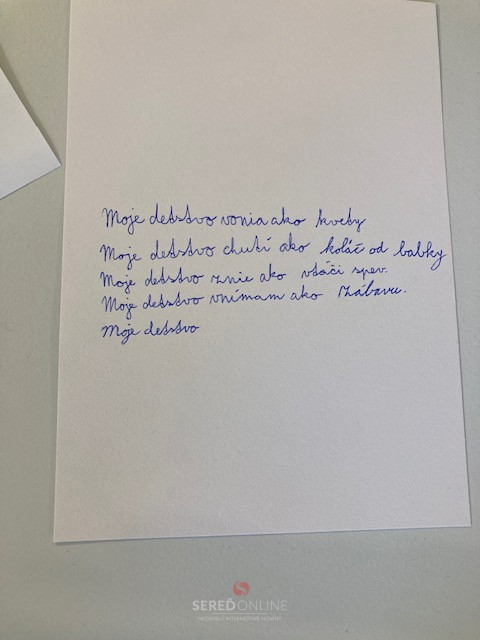 Moje detstvo vonia ako kvety
Moje detstvo chutí ako koláč od babky
Moje detstvo znie ako vtáčí spev.
Moje detstvo vnímam ako zábavu.
Moje detstvo
SEREĎONLINE